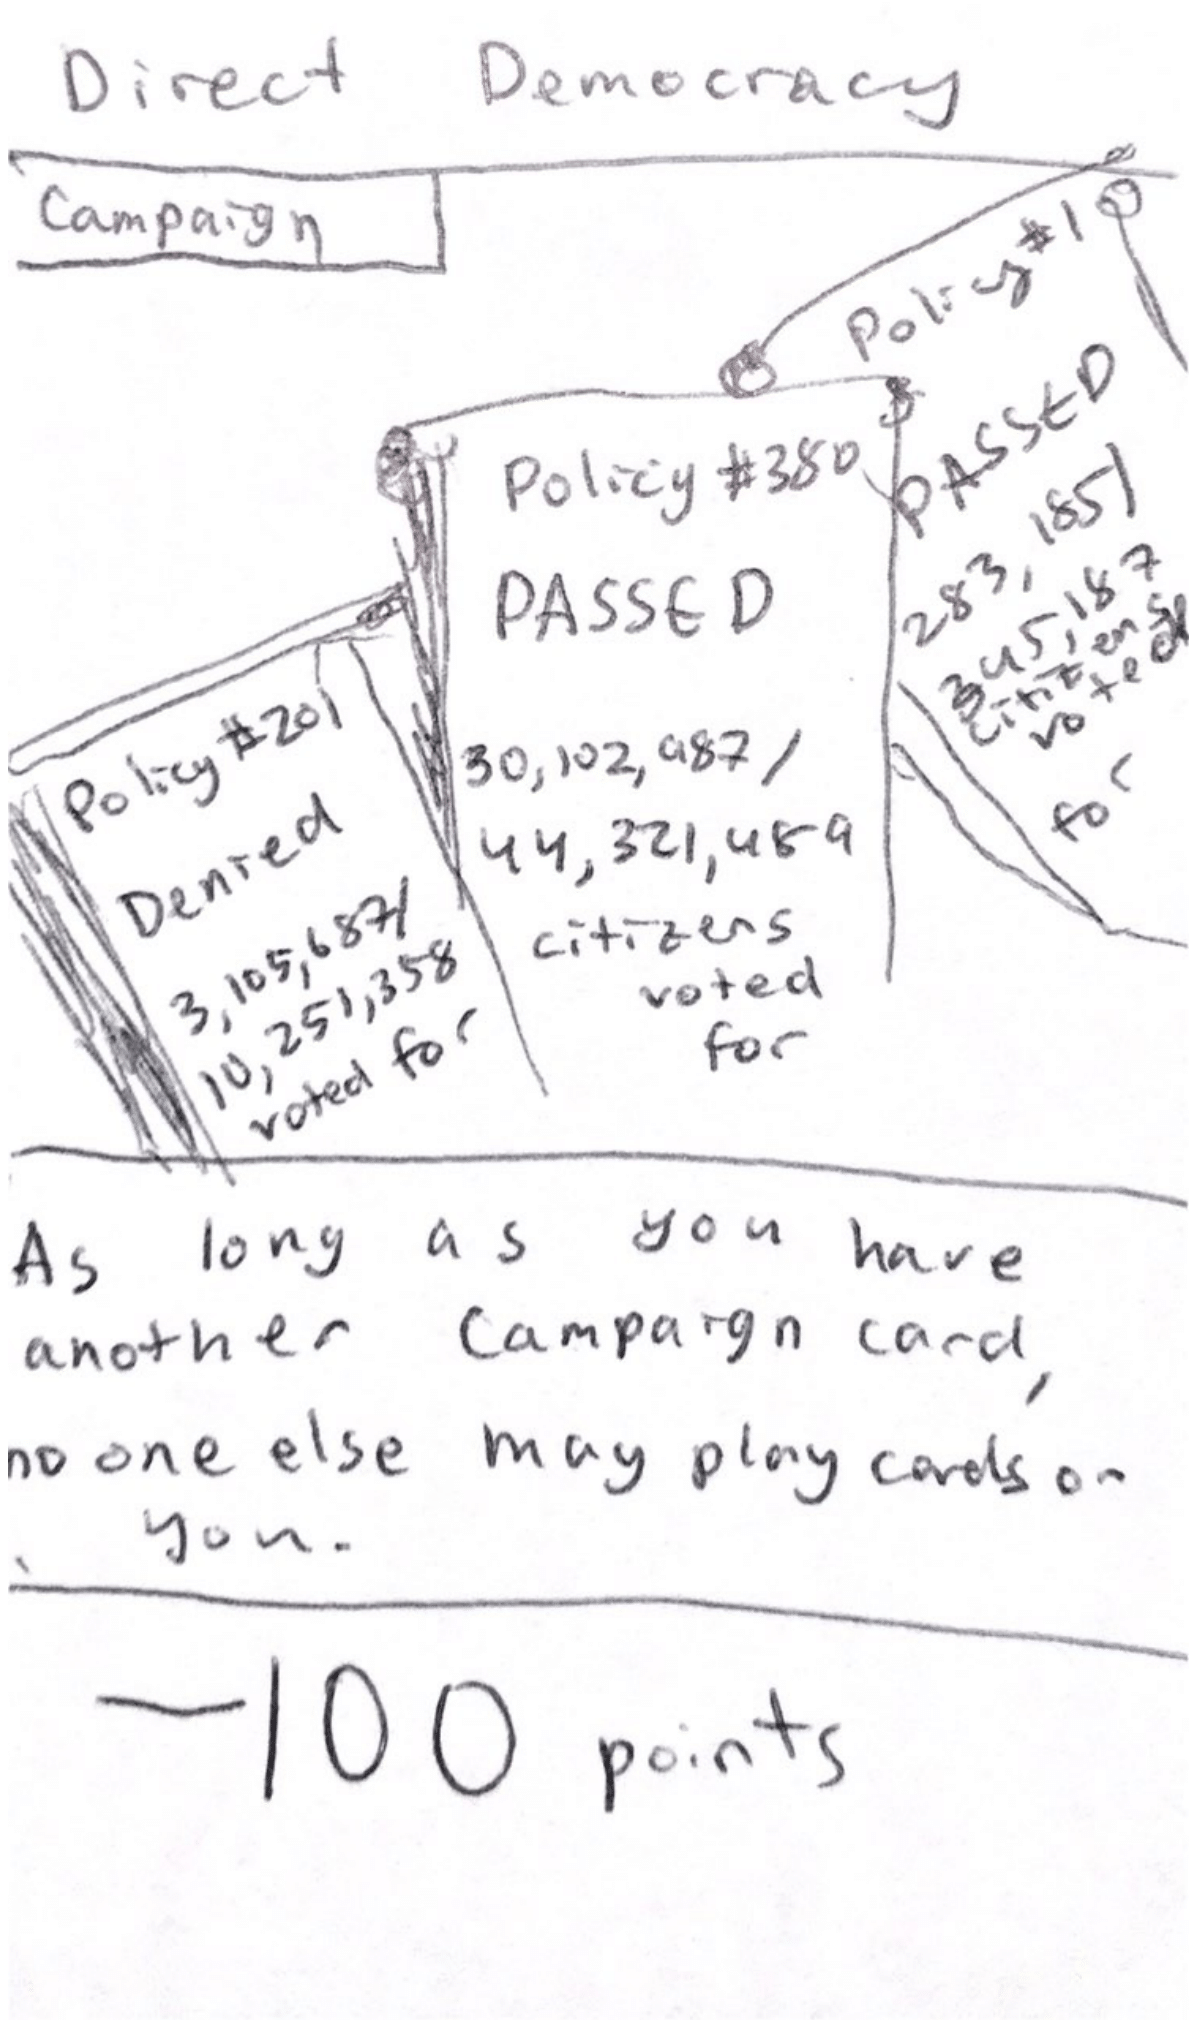 Direct Democracy
Campaign
Policy #1
PASSED
283,185/
345,187
citizens
voted
for
Policy #380
PASSED
30,102,987/
44,321,459
citizens
voted
for
Policy #201
Denied
3,105,687/
10,251,358
voted for
As long as you have
another Campaign card,
no one else may play cards on
you.
-100 points